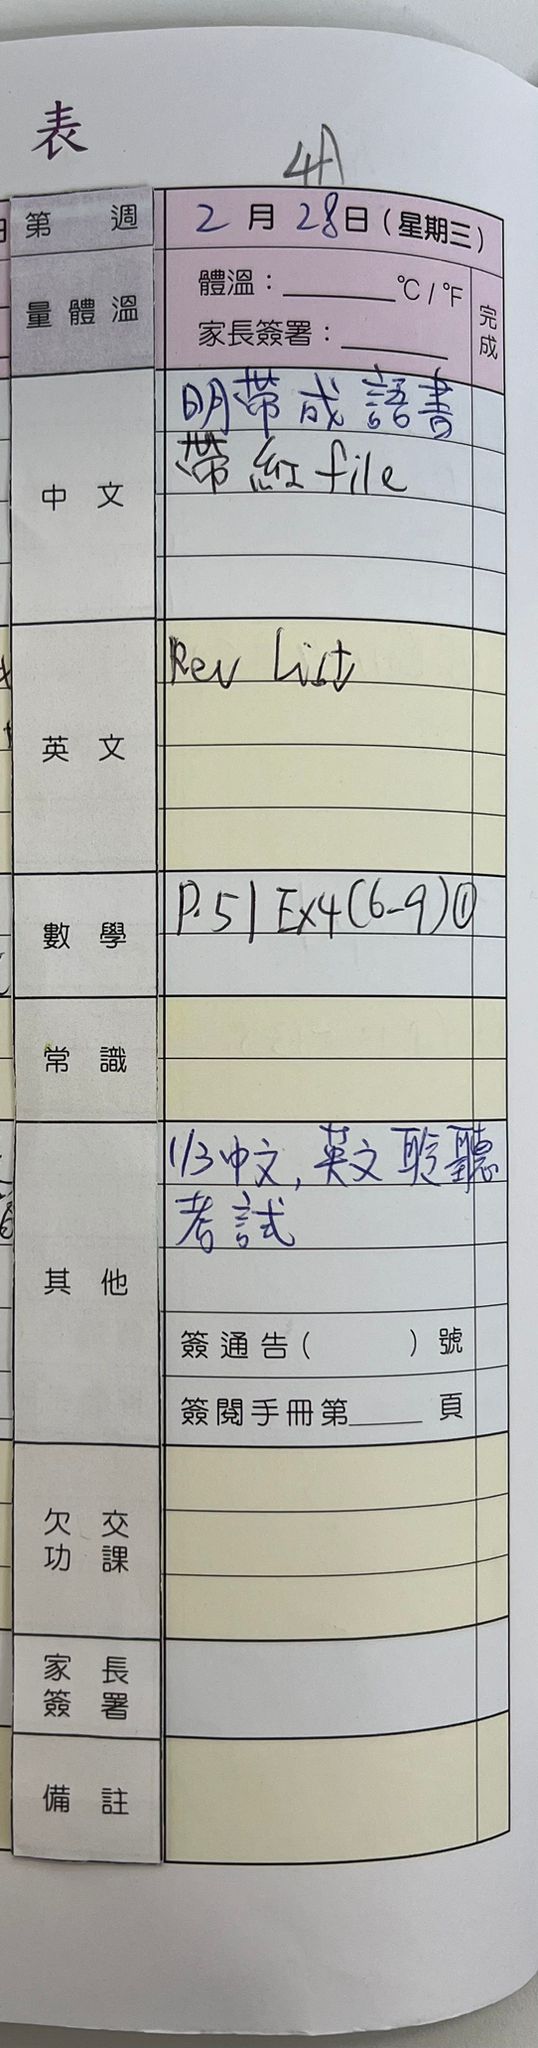 表
4A
第 週 2月28日(星期三)
量體溫 體溫:________°C/°F 完成
家長簽署:________
中文 明帶成語書
帶紅file
英文 Rev List
數學 P.51 Ex4(6-9)①
常識
其他 1/3中文,英文聆聽
考試
簽通告( )號
簽閱手冊第_____頁
欠交功課
家長簽署
備註